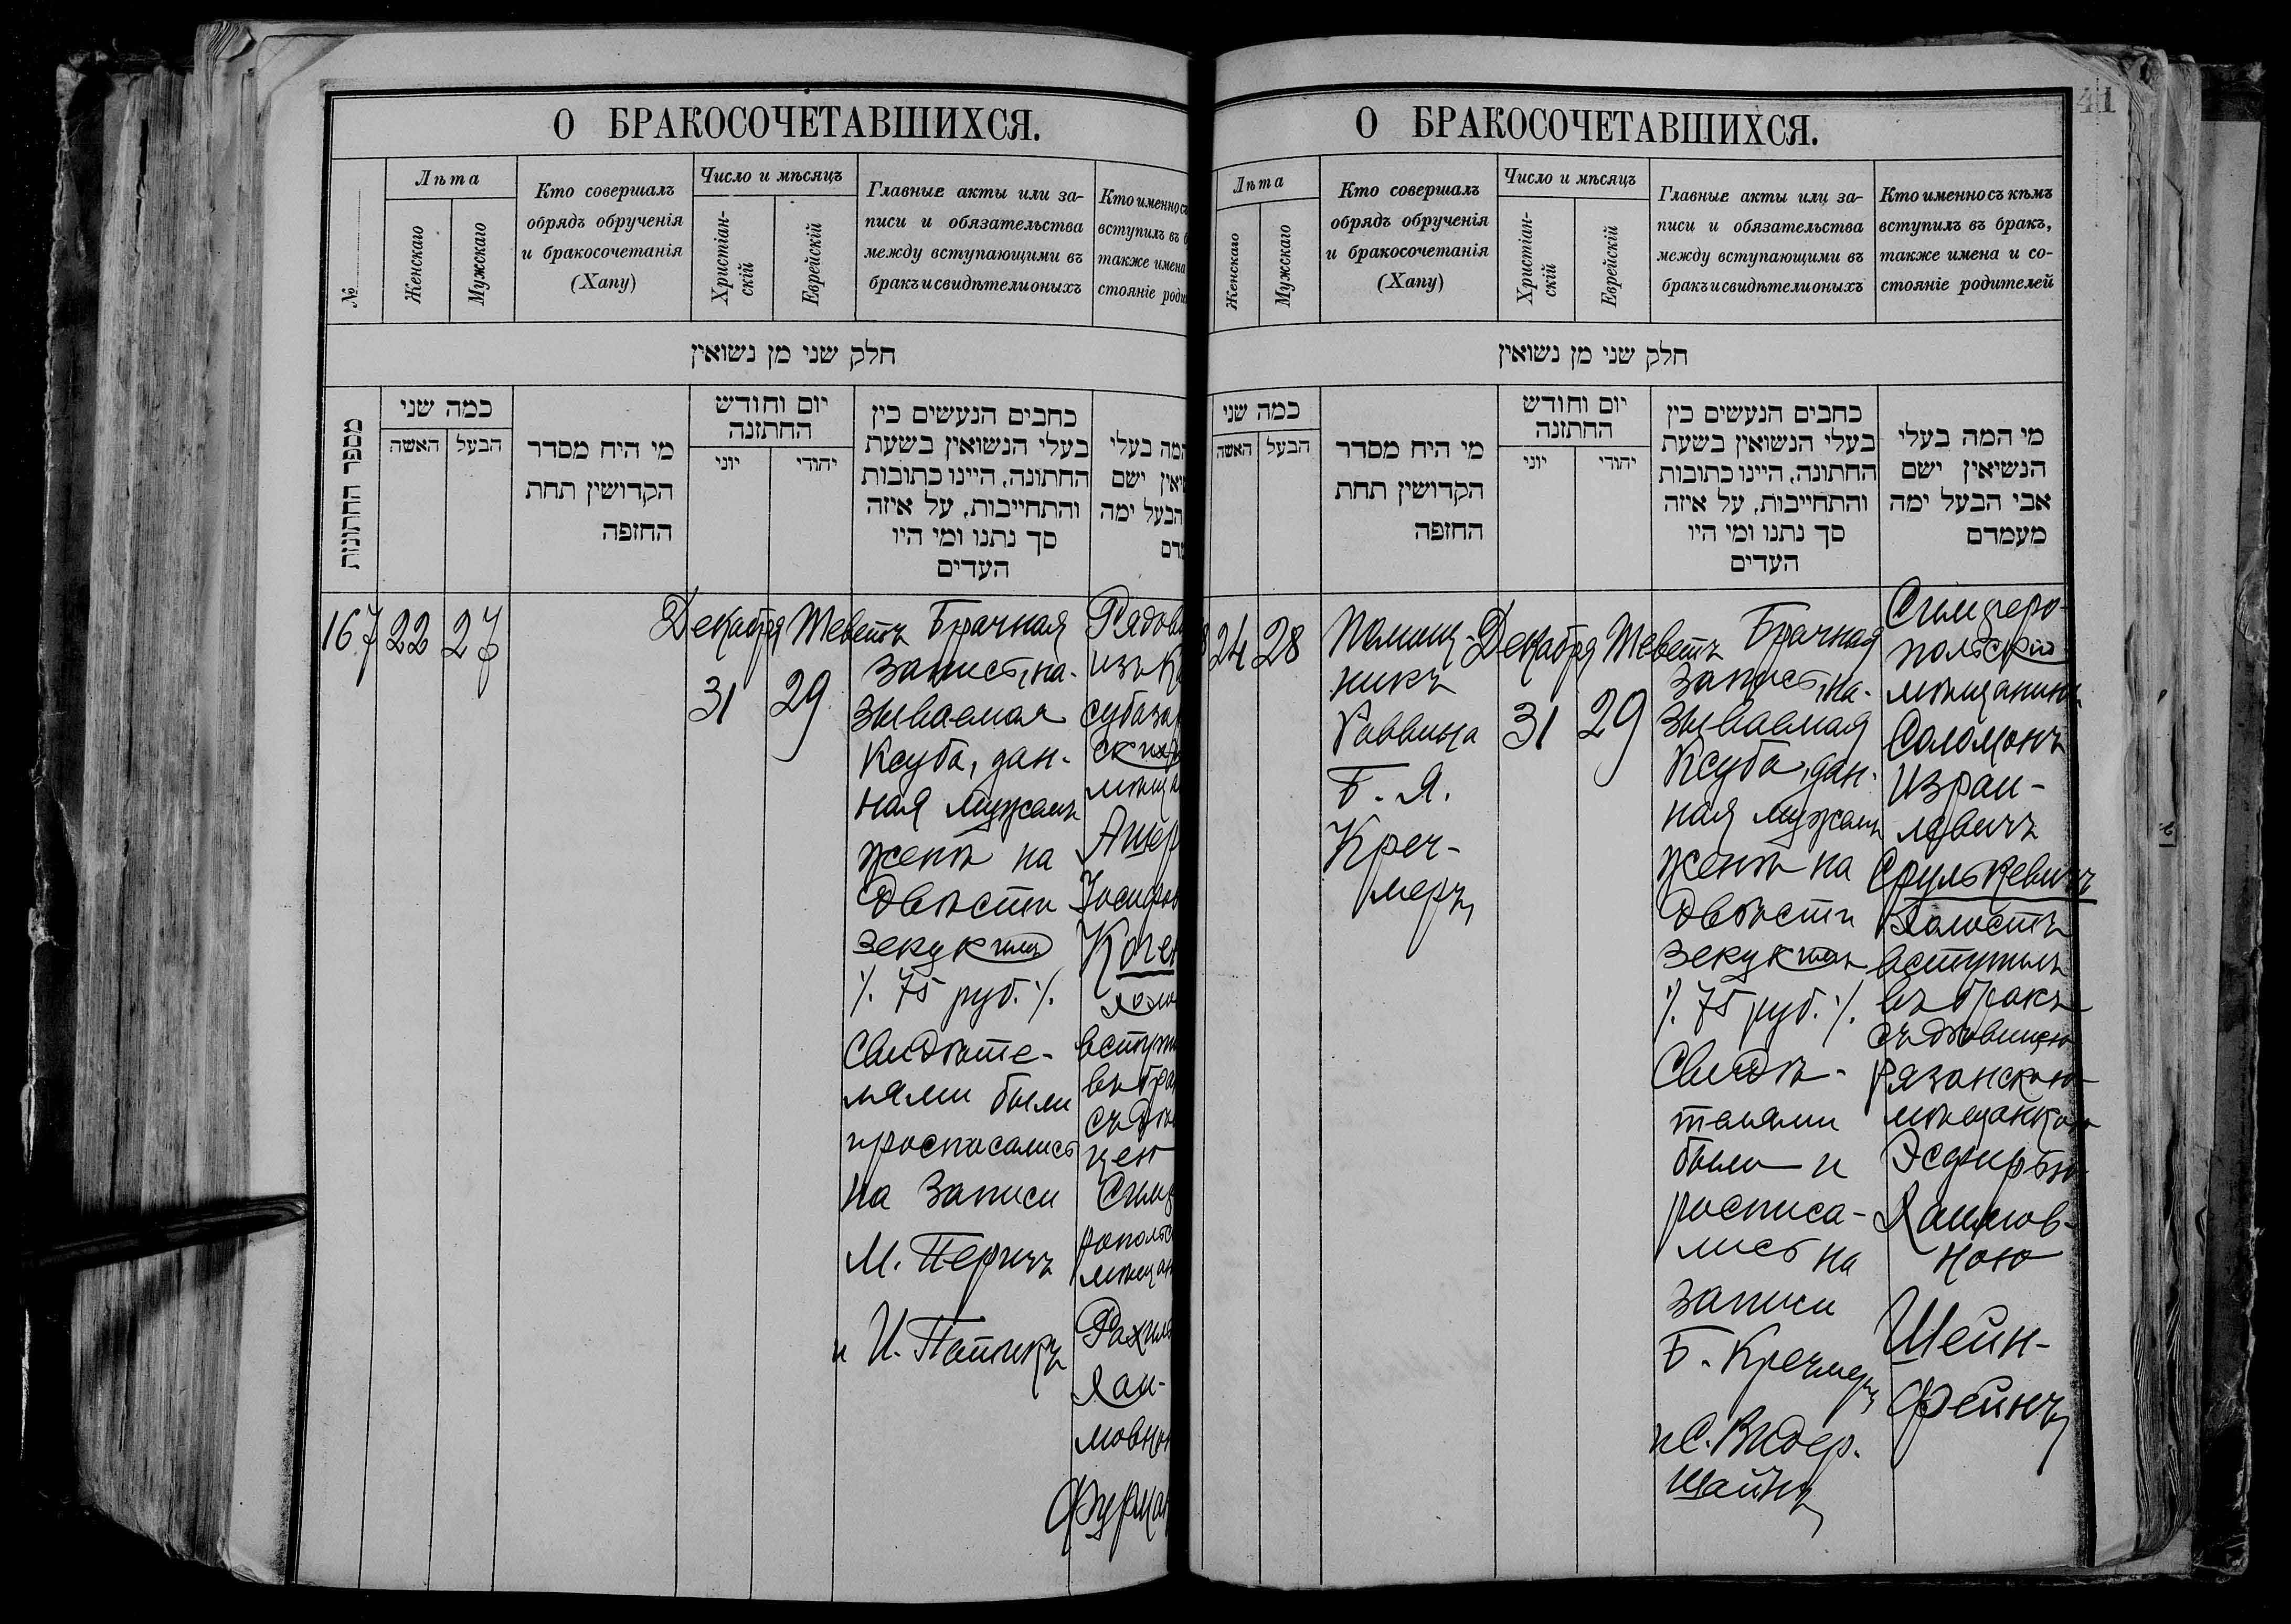 О БРАКОСОЧЕТАВШИХСЯ.
№
Лѣта
Женскаго
Мужскаго
Кто совершалъ
обрядъ обрученія
и бракосочетанія
(Хапу)
Число и мѣсяцъ
Христіан-
скій
Еврейскій
Главные акты или за-
писи и обязательства
между вступающими въ
бракъ и свидѣтели оныхъ
Кто именно съ
вступилъ въ б
также имена
стояніе роди
חלק שני מן נשואין
מספר החתונות
כמה שני
האשה
הבעל
מי היח מסדר
הקדושין תחת
החזפה
יום וחודש
החתזנה
יוני
יהודי
כחבים הנעשים כין
בעלי הנשואין בשעת
החתונה, היינו כתובות
והתחייבות, על איזה
סך נתנו ומי היו
העדים
המה בעלי
יאין ישם
הבעל ימה
167
22
27
Декабря
31
Теветъ
29
Брачная
запись, на-
зываемая
Ксуба, дан-
ная мужемъ
женѣ на
двѣсти
зекукимъ
٪ 75 руб. ٪
Свидѣте-
лями были
и росписались
на записи
М. Перичъ
и И. Патикъ
Рядов
изъ К
субаза
ских
мѣщ
Ашер
Іосифов
Коген
холо
вступи
въ бра
съ дѣв
цею
Симф
рополь
мѣщан
Рахиль
Хаи-
мовно
Фурман
О БРАКОСОЧЕТАВШИХСЯ.
41
Лѣта
Женскаго
Мужскаго
Кто совершалъ
обрядъ обрученія
и бракосочетанія
(Хапу)
Число и мѣсяцъ
Христіан-
скій
Еврейскій
Главные акты или за-
писи и обязательства
между вступающими въ
бракъ и свидѣтели оныхъ
Кто именно съ кѣмъ
вступилъ въ бракъ,
также имена и со-
стояніе родителей
חלק שני מן נשואין
כמה שני
האשה
הבעל
מי היח מסדר
הקדושין תחת
החזפה
יום וחודש
החתזנה
יוני
יהודי
כחבים הנעשים כין
בעלי הנשואין בשעת
החתונה, היינו כתובות
והתחייבות, על איזה
סך נתנו ומי היו
העדים
מי המה בעלי
הנשיאין ישם
אבי הבעל ימה
מעמדם
8
24
28
Помощ-
никъ
Раввина
Б. Я.
Креч-
меръ
Декабря
31
Теветъ
29
Брачная
запись, на-
зываемая
Ксуба, дан-
ная мужемъ
женѣ на
двѣсти
зекукимъ
٪ 75 руб. ٪
Свидѣ-
телями
были и
росписа-
лись на
записи
Б. Кречмеръ
и С. Видер-
шайнъ
Симферо-
польскій
мѣщанинъ
Соломонъ
Израи-
левичъ
Срулькевичъ
холостъ
вступилъ
въ бракъ
съ дѣвицею
Рязанскою
мѣщанкою
Эсфирью
Хаимов-
ною
Шейн-
фейнъ